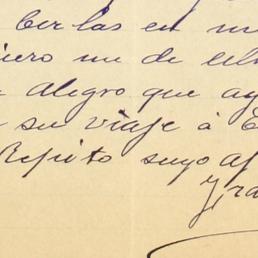 ber las en m
iero me de
alegro que
su viaje á E
Repito suyo af
Yra